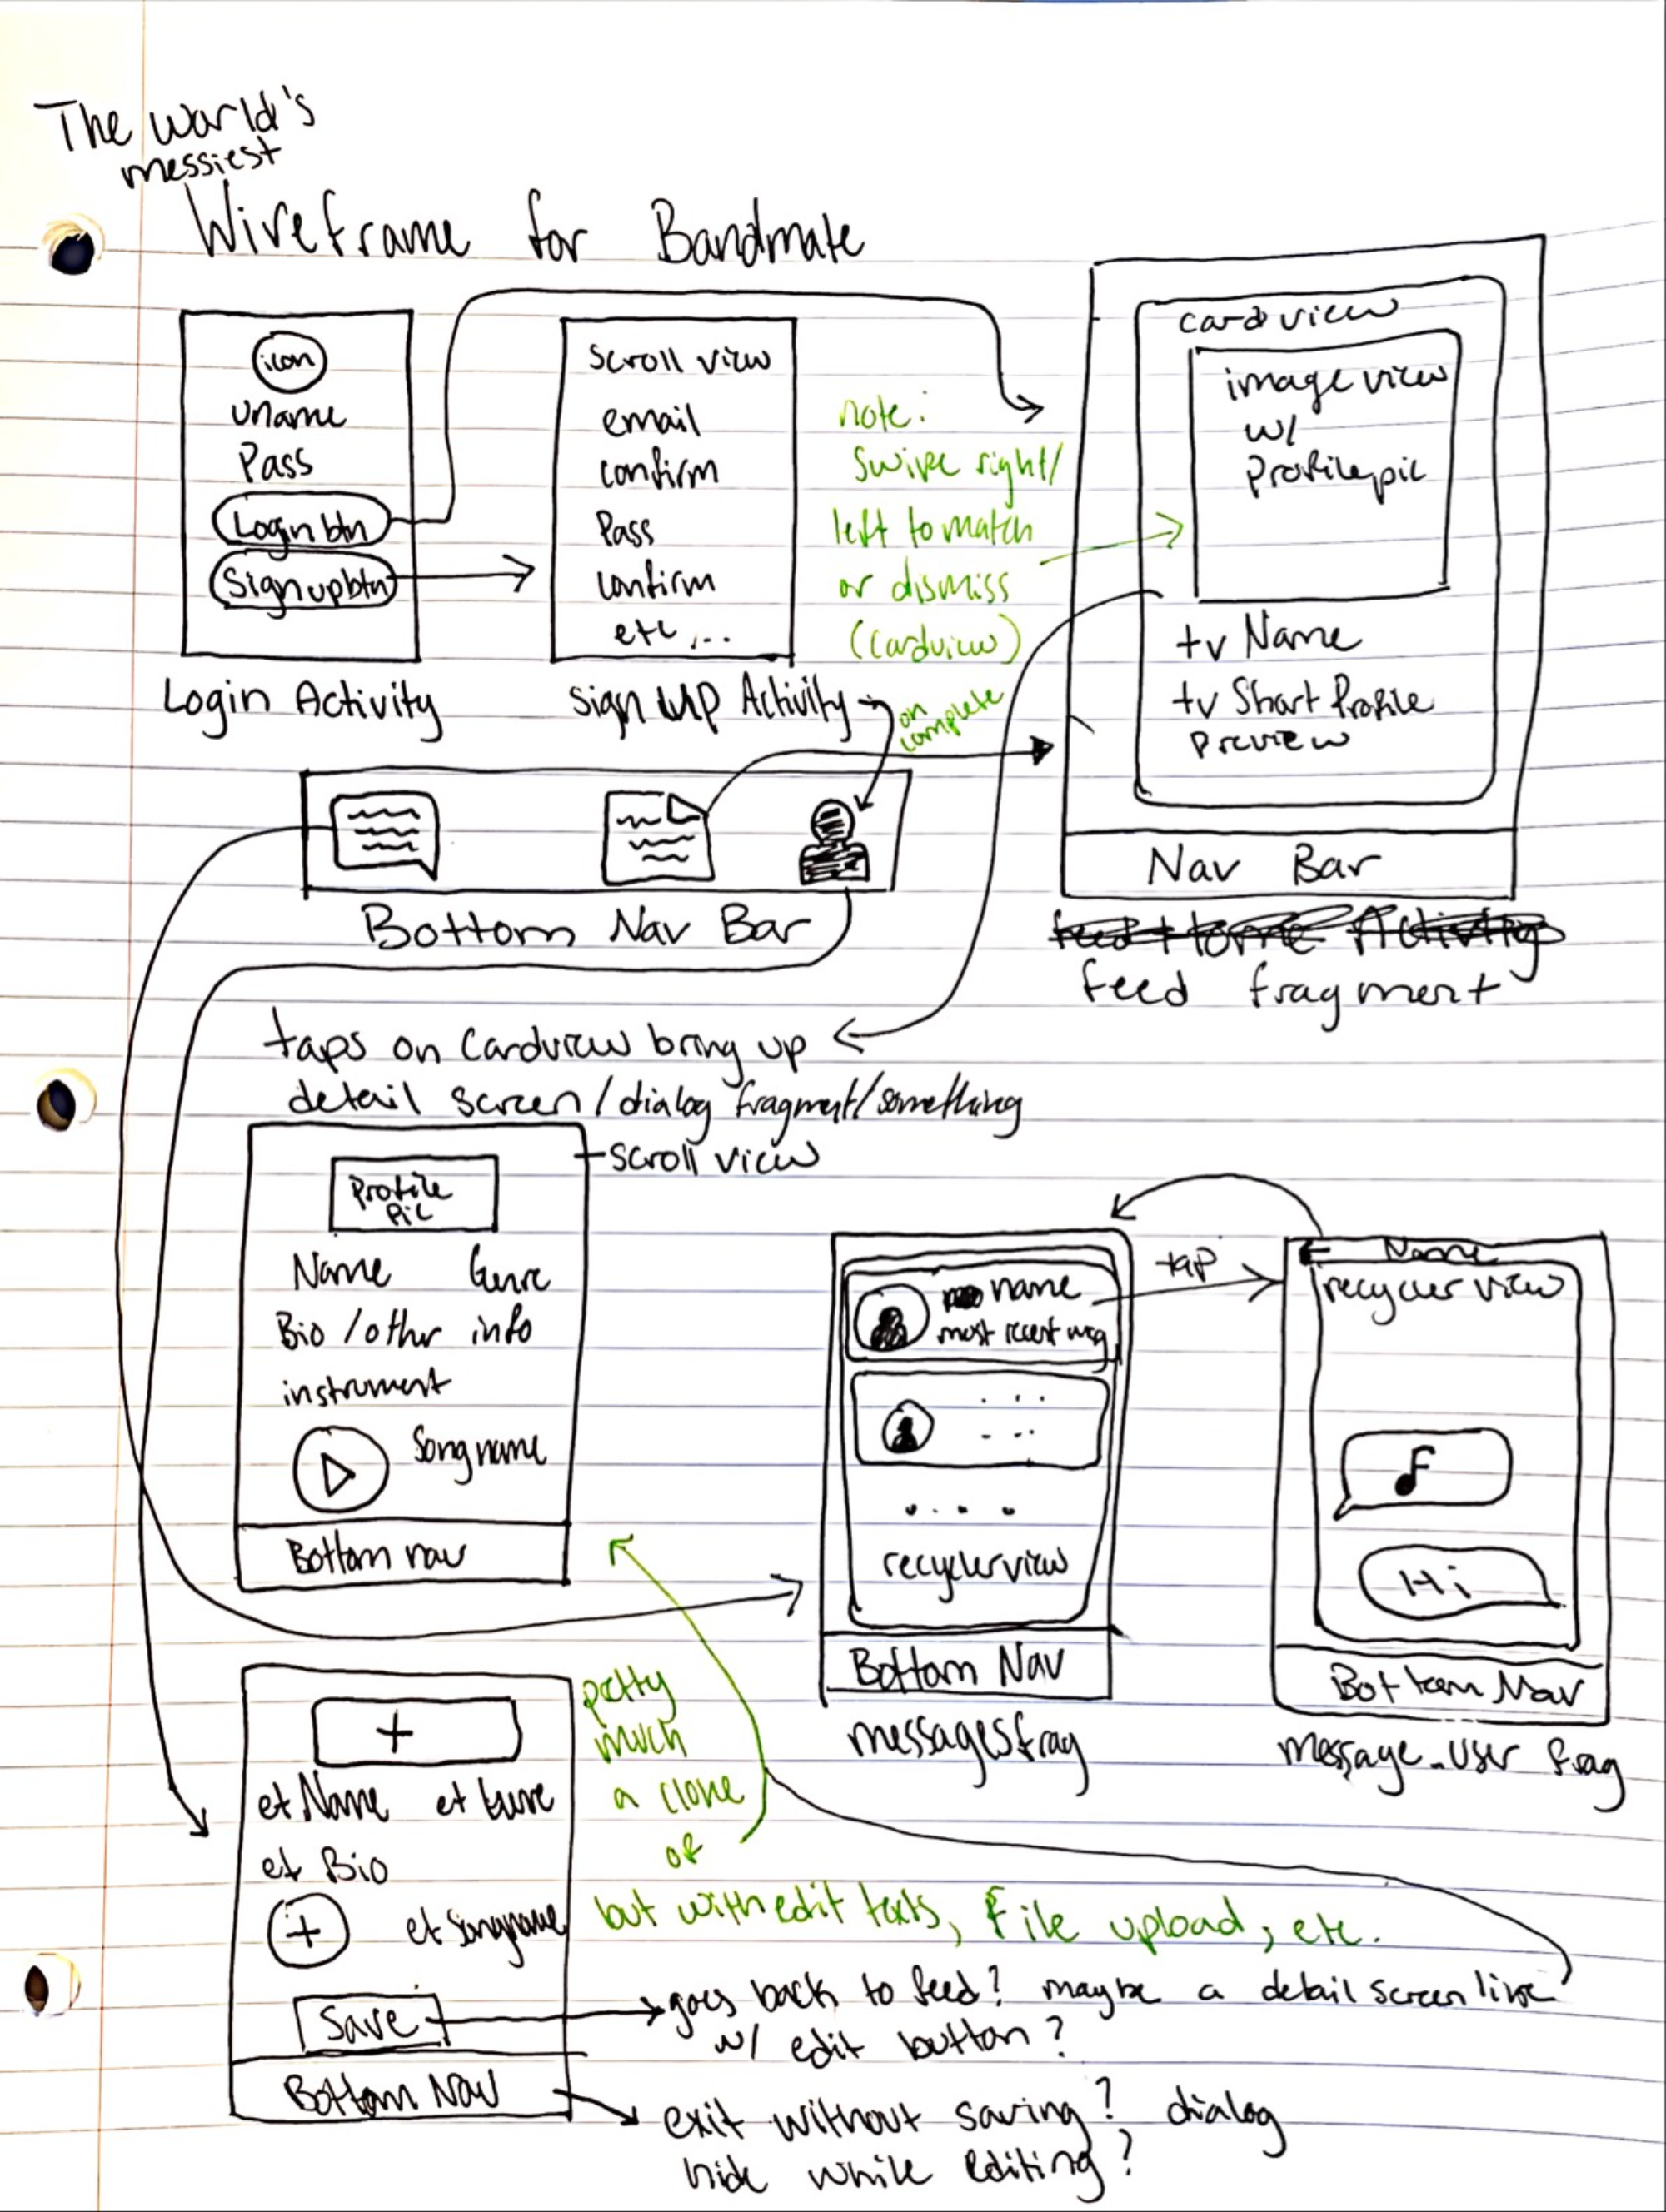 The world's
messiest
Wireframe for Bandmate
icon
Uname
Pass
Login btn
Sign up btn
Login Activity
Scroll view
email
confirm
Pass
confirm
etc...
Sign up Activity
on
complete
note:
Swipe right/
left to match
or dismiss
(Cardview)
cardview
image view
w/
Profile pic
tv Name
tv Short Profile
Preview
Nav Bar
feed Home Activity
feed fragment
Bottom Nav Bar
taps on Cardview bring up
detail screen/dialog fragment/something
scroll view
Profile
Pic
Name Genre
Bio/other info
instrument
Song name
Bottom nav
name
most recent msg
recyclerview
Bottom Nav
messagesfrag
tap
Name
recycler view
Hi
Bottom Nav
message_user frag
+
et Name et Genre
et Bio
+ et Songname
Save
Bottom Nav
pretty
much
a clone
of
but with edit texts, file upload, etc.
goes back to feed? maybe a detail screen like
w/ edit button?
exit without saving? dialog
hide while editing?